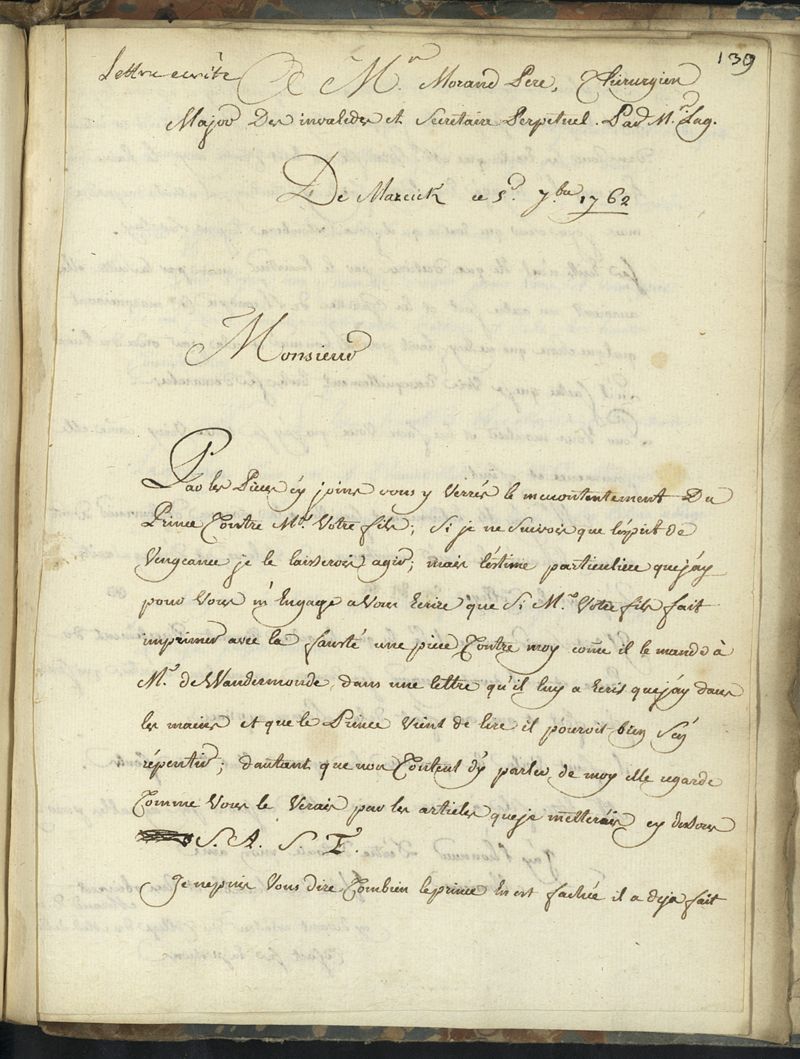 139
Lettre ecrite De M.r Morand Pere, Chirurgien
Major Des invalides et Secretaire Perpetuel. Par M.r Lag.
De Mazeick ce 5.e 7.bre 1762
Monsieur
Par les Pieces cy joins vous y Verrés le mecontentement Du
Prince Contre M.r Votre fils; Si je ne Suivois que l'esprit de
Vengeance je le laisserois agir; mais l'éstime particuliere que j'ay
pour Vous m'Engage a Vous Ecrire que Si M.r Votre fils fait
imprimer avec la fausété une piece Contre moy come il le mande à
M.r de Wandermonde, dans une lettre qu'il luy a Ecris que j'ay dans
les mains et que le Prince Vient de lire il pouroit bien S'en
répentir; dautant que non Content d'y parler de moy elle regarde
Comme Vous le Verais par les articles que je metterais cy dessous
S. A. S. E.
Je ne puis Vous dire Combien le prince En est fachée il a deja fait